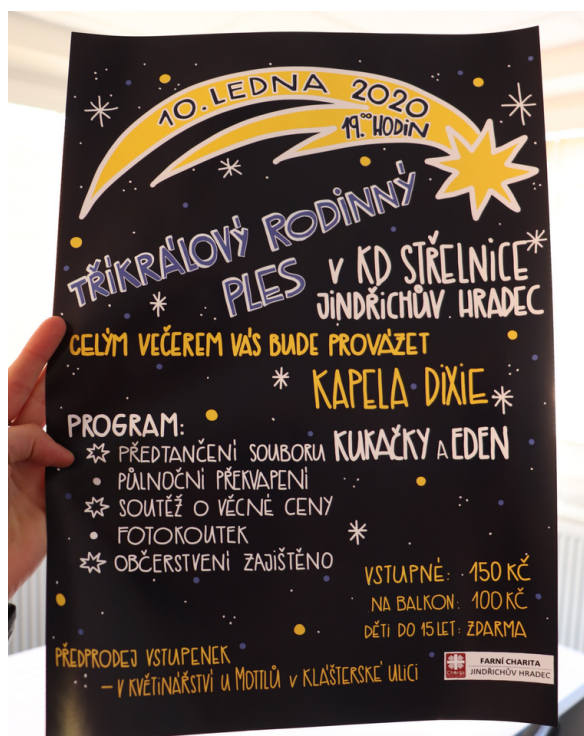 10. LEDNA 2020
19.00 HODIN
TŘÍKRÁLOVÝ RODINNÝ
PLES
V KD STŘELNICE
JINDŘICHŮV HRADEC
CELÝM VEČEREM VÁS BUDE PROVÁZET
KAPELA DIXIE
PROGRAM:
PŘEDTANČENÍ SOUBORU KUKAČKY A EDEN
• PŮLNOČNÍ PŘEKVAPENÍ
SOUTĚŽ O VĚCNÉ CENY
• FOTOKOUTEK
OBČERSTVENÍ ZAJIŠTĚNO
VSTUPNÉ: 150 KČ
NA BALKON: 100 KČ
DĚTI DO 15 LET: ZDARMA
PŘEDPRODEJ VSTUPENEK
– V KVĚTINÁŘSTVÍ U MOTTLŮ V KLÁŠTERSKÉ ULICI
Charita
FARNÍ CHARITA
JINDŘICHŮV HRADEC